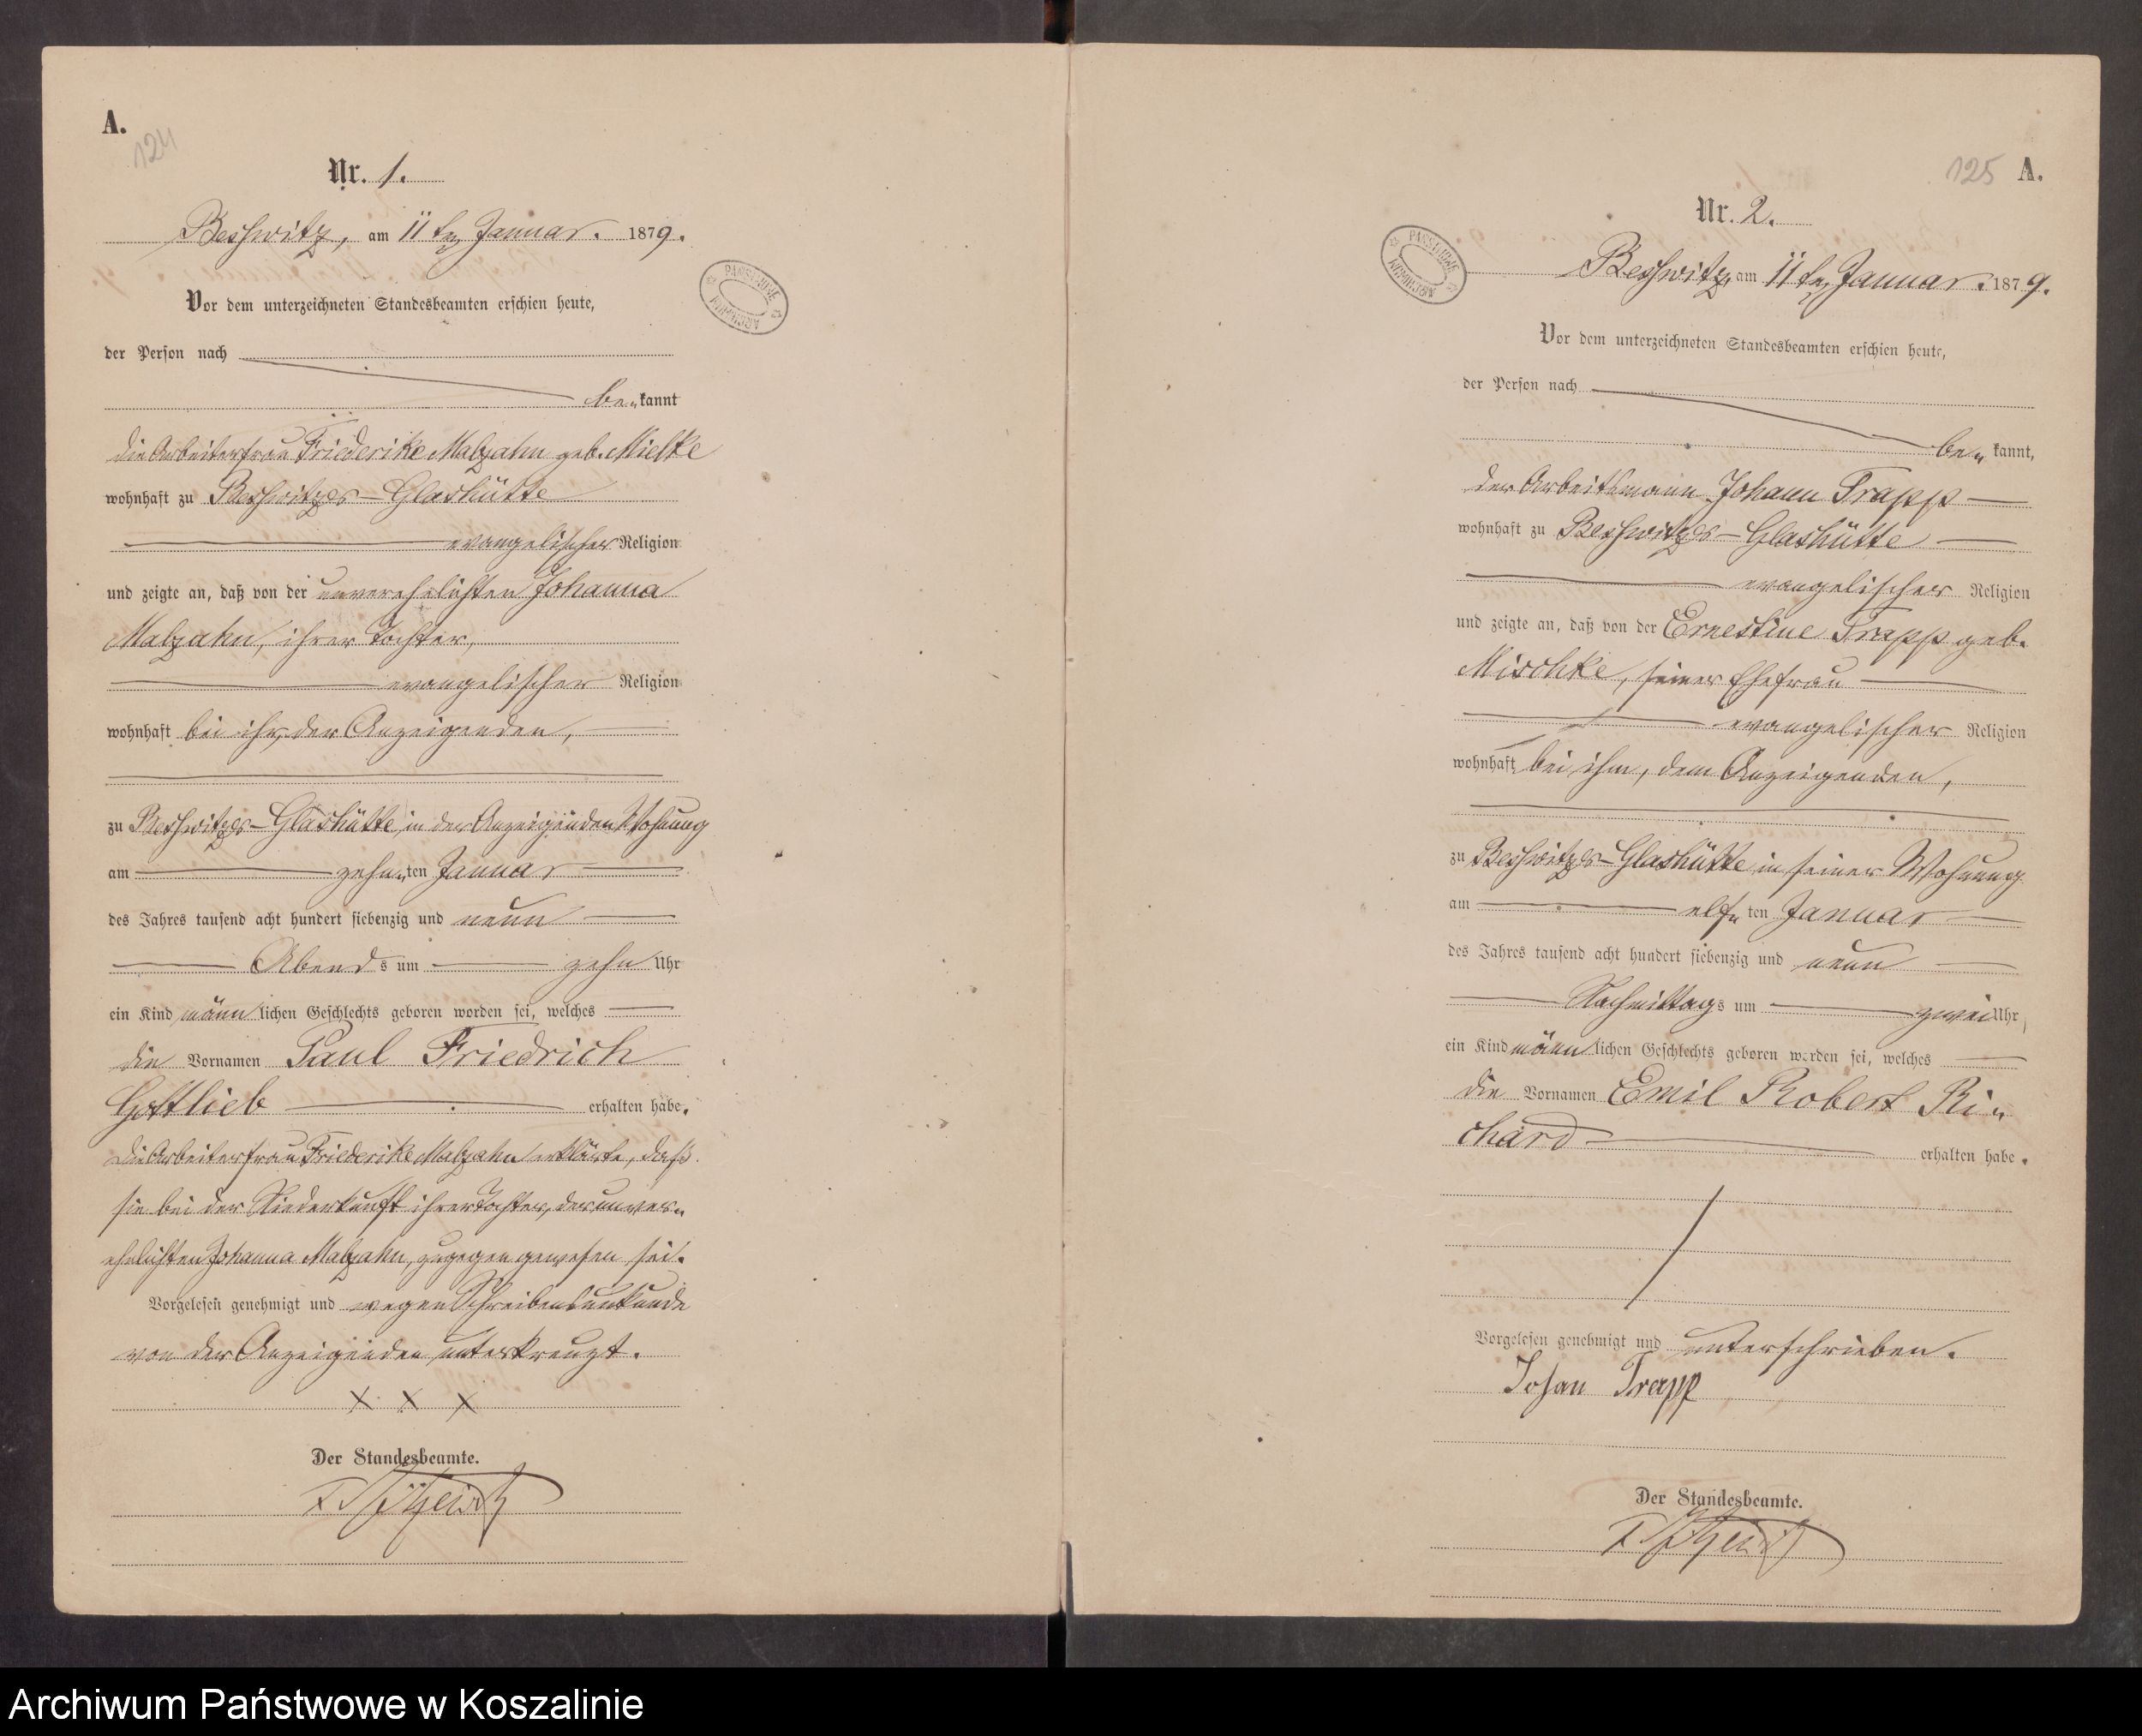 A.
124
Nr. 1.
Beßwitz, am 11ten Januar. 1879.
PAŃSTWOWE ARCHIWUM
Vor dem unterzeichneten Standesbeamten erschien heute,
der Person nach
be„kannt
die Arbeiterfrau Friederike Malzahn geb. Mielke
wohnhaft zu Beßwitzer-Glashütte
evangelischer Religion
und zeigte an, daß von der unverehelichten Johanna
Malzahn, ihrer Tochter,
evangelischer Religion
wohnhaft bei ihr, der Anzeigenden,
zu Beßwitzer-Glashütte in der Anzeigenden Wohnung
am zehn„ten Januar
des Jahres tausend acht hundert siebenzig und neun
Abends um zehn Uhr
ein Kind männlichen Geschlechts geboren worden sei, welches
die Vornamen Paul Friedrich
Gottlieb erhalten habe.
Die Arbeiterfrau Friederike Malzahn erklärte, daß
sie bei der Niederkunft ihrer Tochter, der unver„
ehelichten Johanna Malzahn, zugegen gewesen sei.
Vorgelesen genehmigt und wegen Schreibensunkunde
von der Anzeigenden unterkreuzt.
X X X
Der Standesbeamte.
125 A.
Nr. 2.
PAŃSTWOWE ARCHIWUM
Beßwitz, am 11ten Januar. 1879.
Vor dem unterzeichneten Standesbeamten erschien heute,
der Person nach
be„kannt,
der Arbeitsmann Johann Trapp
wohnhaft zu Beßwitzer-Glashütte
evangelischer Religion
und zeigte an, daß von der Ernestine Trapp geb.
Mischke, seiner Ehefrau
evangelischer Religion
wohnhaft bei ihm, dem Anzeigenden,
zu Beßwitzer-Glashütte in seiner Wohnung
am elf„ten Januar
des Jahres tausend acht hundert siebenzig und neun
Nachmittags um zwei Uhr,
ein Kind männlichen Geschlechts geboren worden sei, welches
die Vornamen Emil Robert Ri„
chard erhalten habe.
Vorgelesen genehmigt und unterschrieben.
Johan Trapp
Der Standesbeamte.
Archiwum Państwowe w Koszalinie